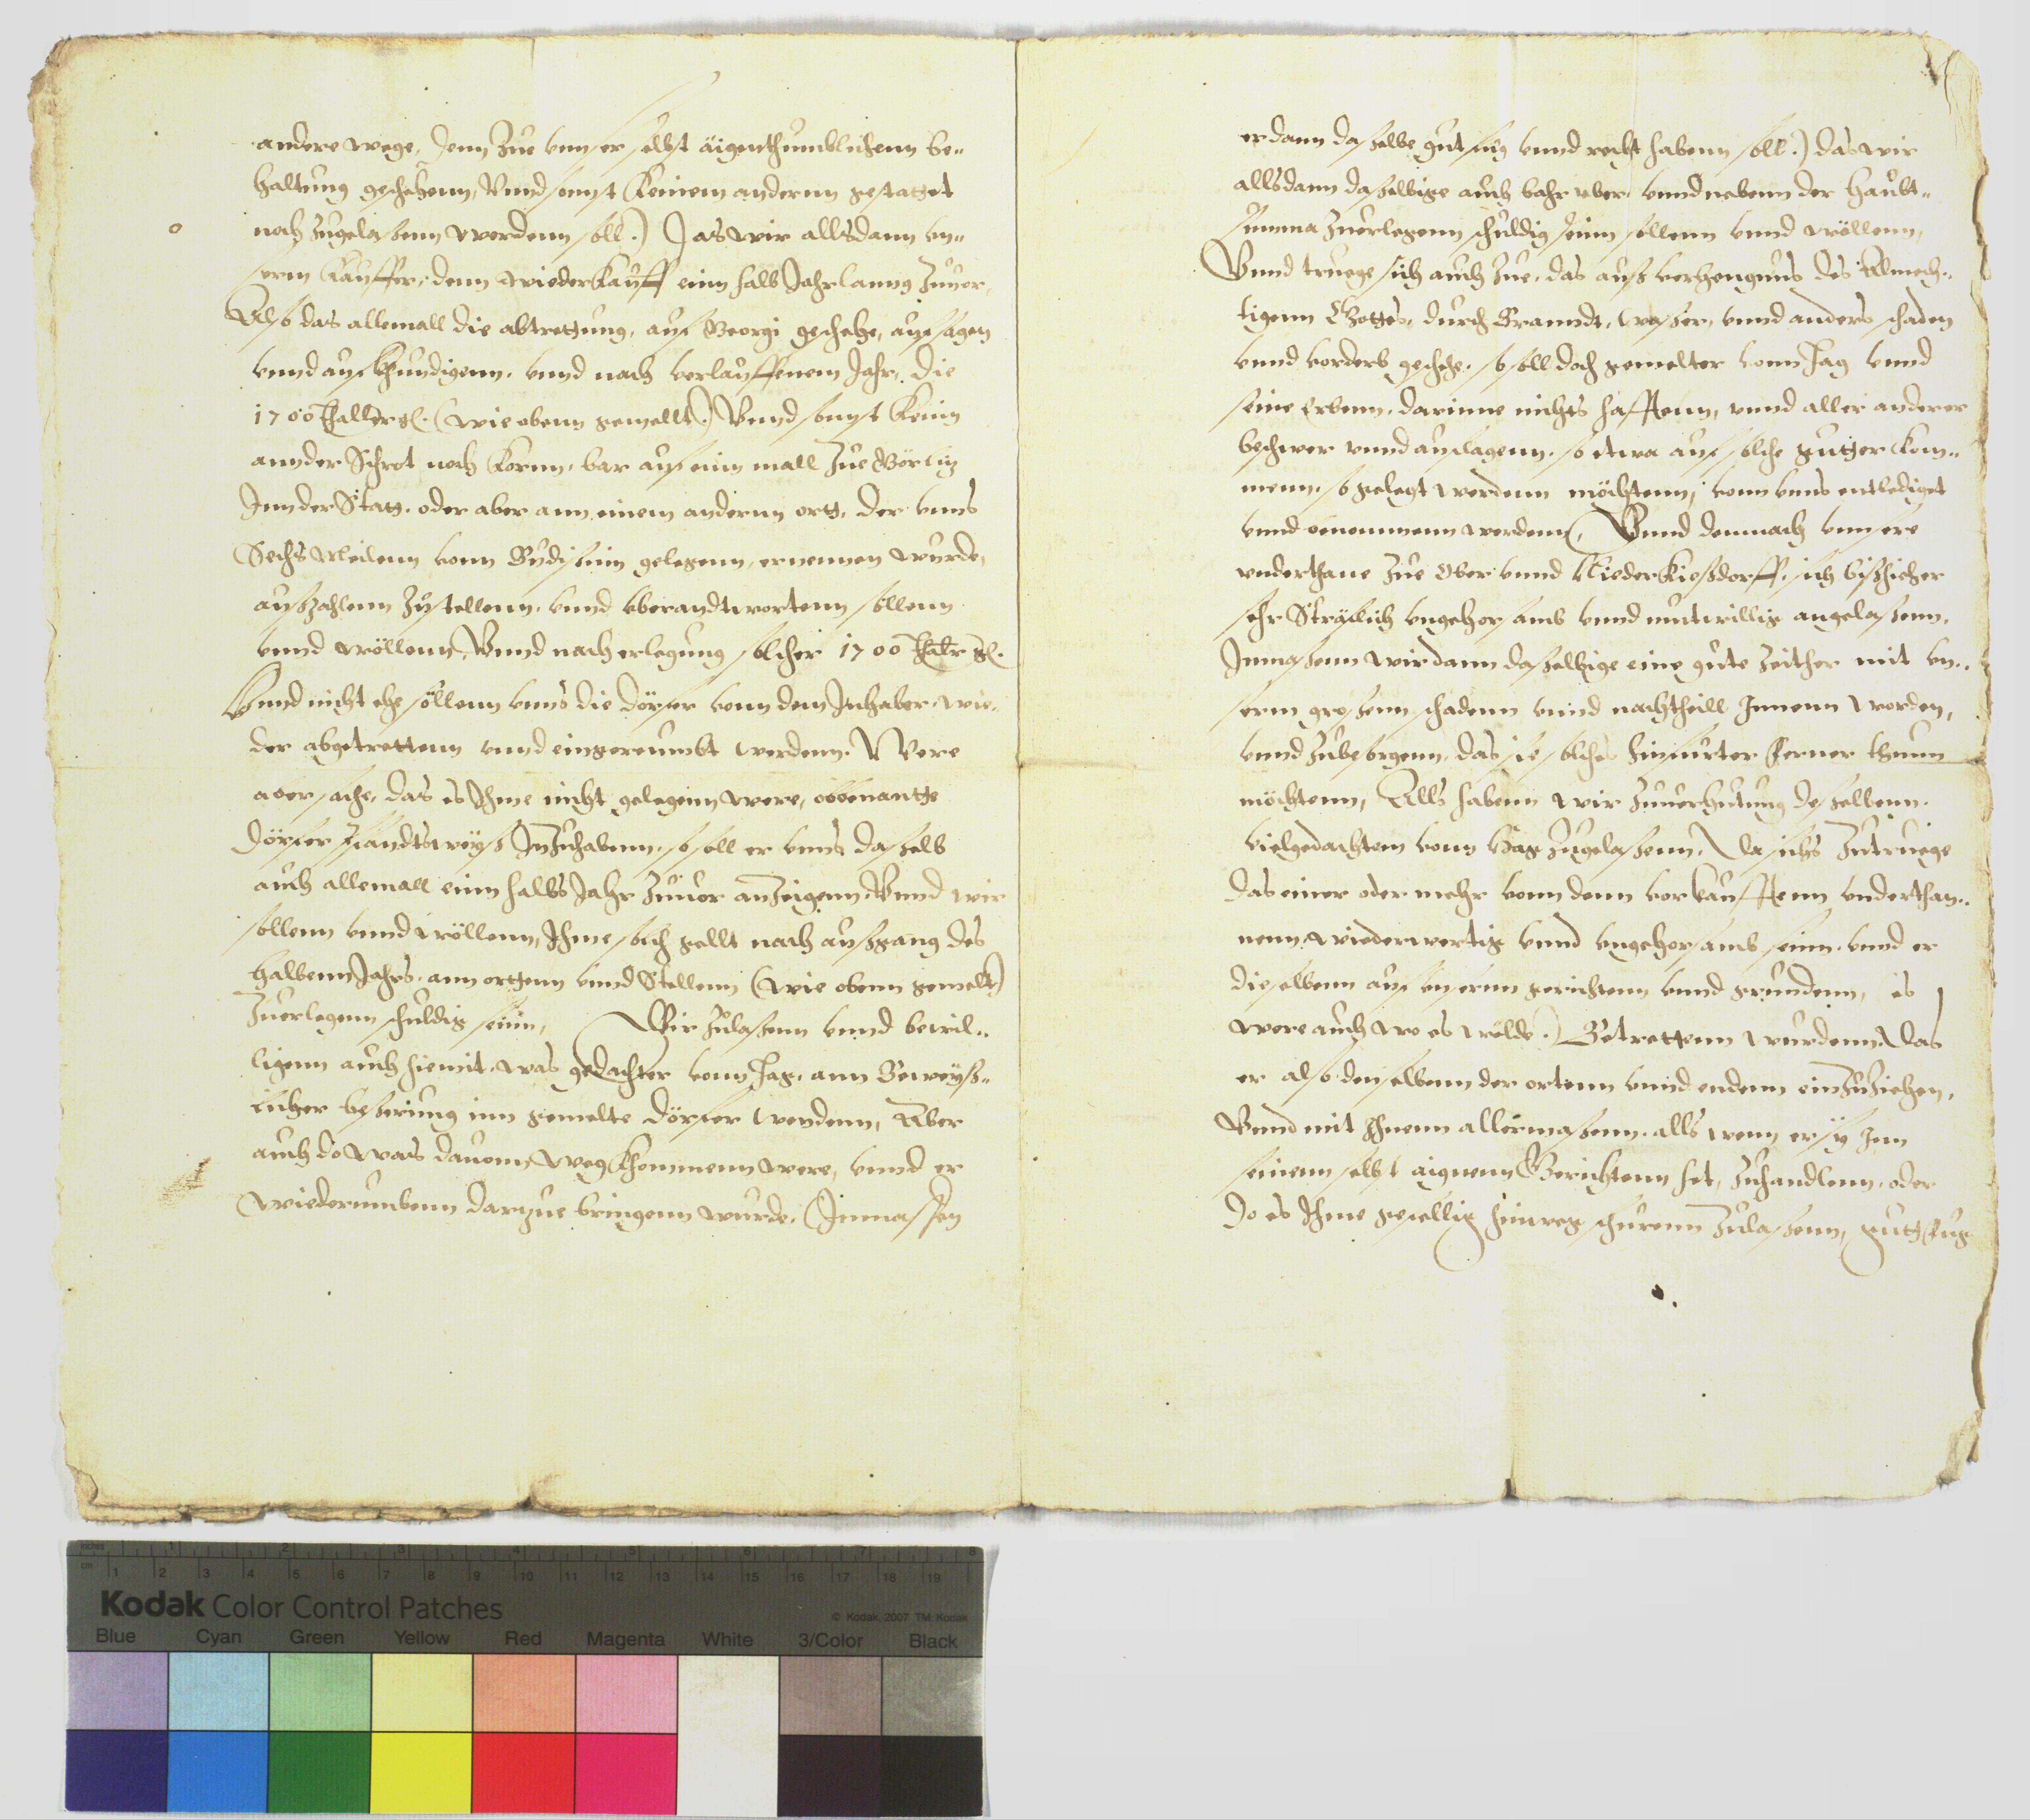 andere wege, denn Zue unnser selbst äigenthumblichenn be-
haltung geschehenn, Vnnd sonnst Keinem andernn gestattet
noch zugelassenn werdenn soll.) Das wir allsdann vn-
serm Kauffer, denn wiederkauff einn halb Jahrlanng zuuor,
Also das allemall die abtrettung, auf Georgi geschehe, auffsagen
vnnd aufkhundigenn. vnnd nach verlauffenem Jahr, die
1700 thaller gl. (wie obenn gemellt.) Vnnd sonnst Kein
annder Schrot noch Kornn, bar auf ein mall Zue Görlitz
Inn der Statt, oder aber ann einem andernn ortt, der vnns
Sechs Meilenn vonn Budissinn gelegenn, ernennen wurde,
außzahlenn zustellenn, vnnd vberandtwortenn sollenn
vnnd wöllenn, Vnnd nach erlegung solcher 1700 thalr gl.
Vnnd nicht ehe söllenn vnns die dörfer vonn dem Inhaber wie-
der abgetrettenn vnnd eingereumbt werdenn. Were
aber sache, das es Ihme nicht gelegenn were, obbenantte
dörfer Pfandtsweyß Inzuhabenn, so soll er vnns dasselb
auch allemall einn halbs Jahr zuuor anzeigenn, Vnnd wir
sollenn vnnd wöllenn, Ihme solch gellt nach außgang des
halbenn Jahrs, ann orttenn vnnd Stellenn (wie obenn gemelt)
Zuerlegenn schuldig seinn, Wir zulassenn vnnd bewil-
ligenn auch hiemit, was gedachter vonn Hag, ann Beweyß-
licher besserung inn gemelte dörfer wendenn, Aber
auch do was dauonn wegkhommenn were, vnnd er
wiederumbenn darzue bringenn wurde. (Inmassen
er dann dasselbe gut fug vnnd recht habenn soll.) das wir
allsdann dasselbige auch bahr vber, vnnd nebenn der haubt-
summa zuerlegenn schuldig seinn sollenn vnnd wöllenn,
Vnnd truege sich auch zue, das auß verhengnus des Almech-
tigenn Gottes, durch Branndt, wasser, vnnd anders schaden
vnnd vorderb geschehe. so soll doch gemelter vonn Hag vnnd
seine Erbenn, darinne nichts hafftenn, vnnd aller anderer
beschwer vnnd auflagenn. so etwa auf solche gutter kom-
menn, so gelegt werdenn möchtenn, vonn vnns entlediget
vnnd benommenn werdenn, Vnnd demnach vnnsere
vnderthane Zue Ober vnnd Niederkießdorff, sich bißhieher
sehr Sträflich vngehorsamb vnnd mutwillig angelassenn,
Inmassenn wir dann dasselbige eine gute Zeither mit vn-
serm grossenn schadenn vnnd nachtheill Innenn worden,
vnnd zubesorgenn, das sie solches hinfurter ferner thuun
möchtenn, Alls habenn wir zuuerhutung desselbenn.
vielgedachtem vonn Hag zugelassenn, Da sichs Zutruege
das einer oder mehr vonn denn vorkaufftenn vnderthan-
nenn wiederwertig vnnd vngehorsamb seinn, vnnd er
dieselbenn auf vnsernn gerichtenn vnnd grundenn, (es
were auch wo es wölde.) Betrettenn wurdenn, Das
er also denselbenn der ortenn vnnd endenn einzuziehen,
Vnnd mit Ihnenn allermassenn, alls wenn er sy Inn
seinenn selbst aignenn Gerichtenn het, zuhandlenn, oder
do es Ihme gefellig hinweg fhurenn zulassenn, gutt fug
Kodak Color Control Patches
© Kodak, 2007 TM: Kodak
Blue Cyan Green Yellow Red Magenta White 3/Color Black
inches 1 2 3 4 5 6 7 8
cm 1 2 3 4 5 6 7 8 9 10 11 12 13 14 15 16 17 18 19